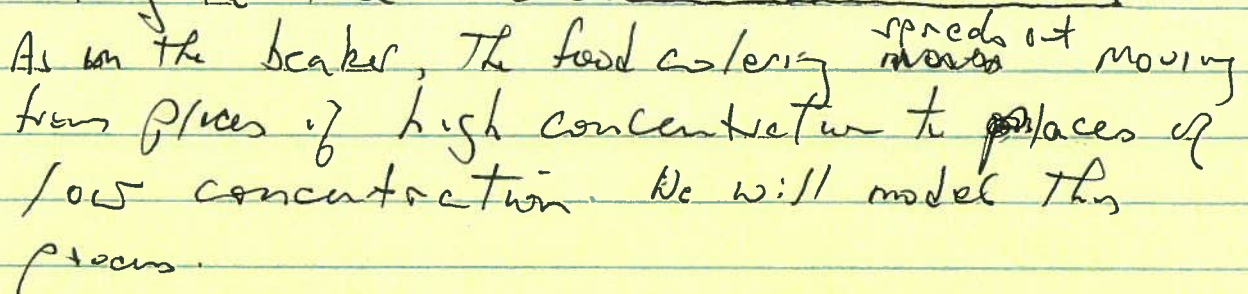 As in the beaker, The food coloring spreads out moving
from places of high concentration to places of
low concentration. We will model this
process.